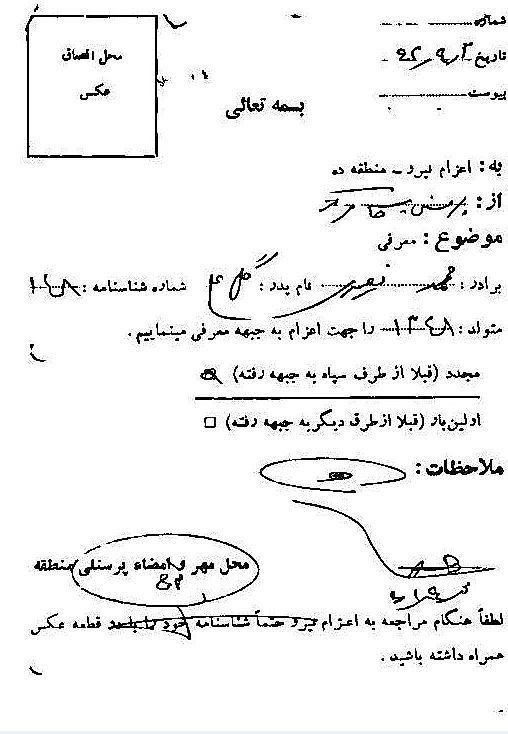 شماره
تاریخ
پیوست
محل الصاق
عکس
بسمه تعالی
به: اعزام نیرو ـ منطقه ده
از: پرسنلی
موضوع: معرفی
برادر: محمد نصیری نام پدر: گل علی شماره شناسنامه:
متولد: ۱۳۴۸ را جهت اعزام به جبهه معرفی مینماییم.
مجدد (قبلا از طرف سپاه به جبهه رفته)
اولین بار (قبلا از طرق دیگر به جبهه رفته) □
ملاحظات:
محل مهر و امضاء پرسنلی منطقه
لطفاً هنگام مراجعه به اعزام نیرو حتماً شناسنامه خود قطعه عکس
همراه داشته باشید.